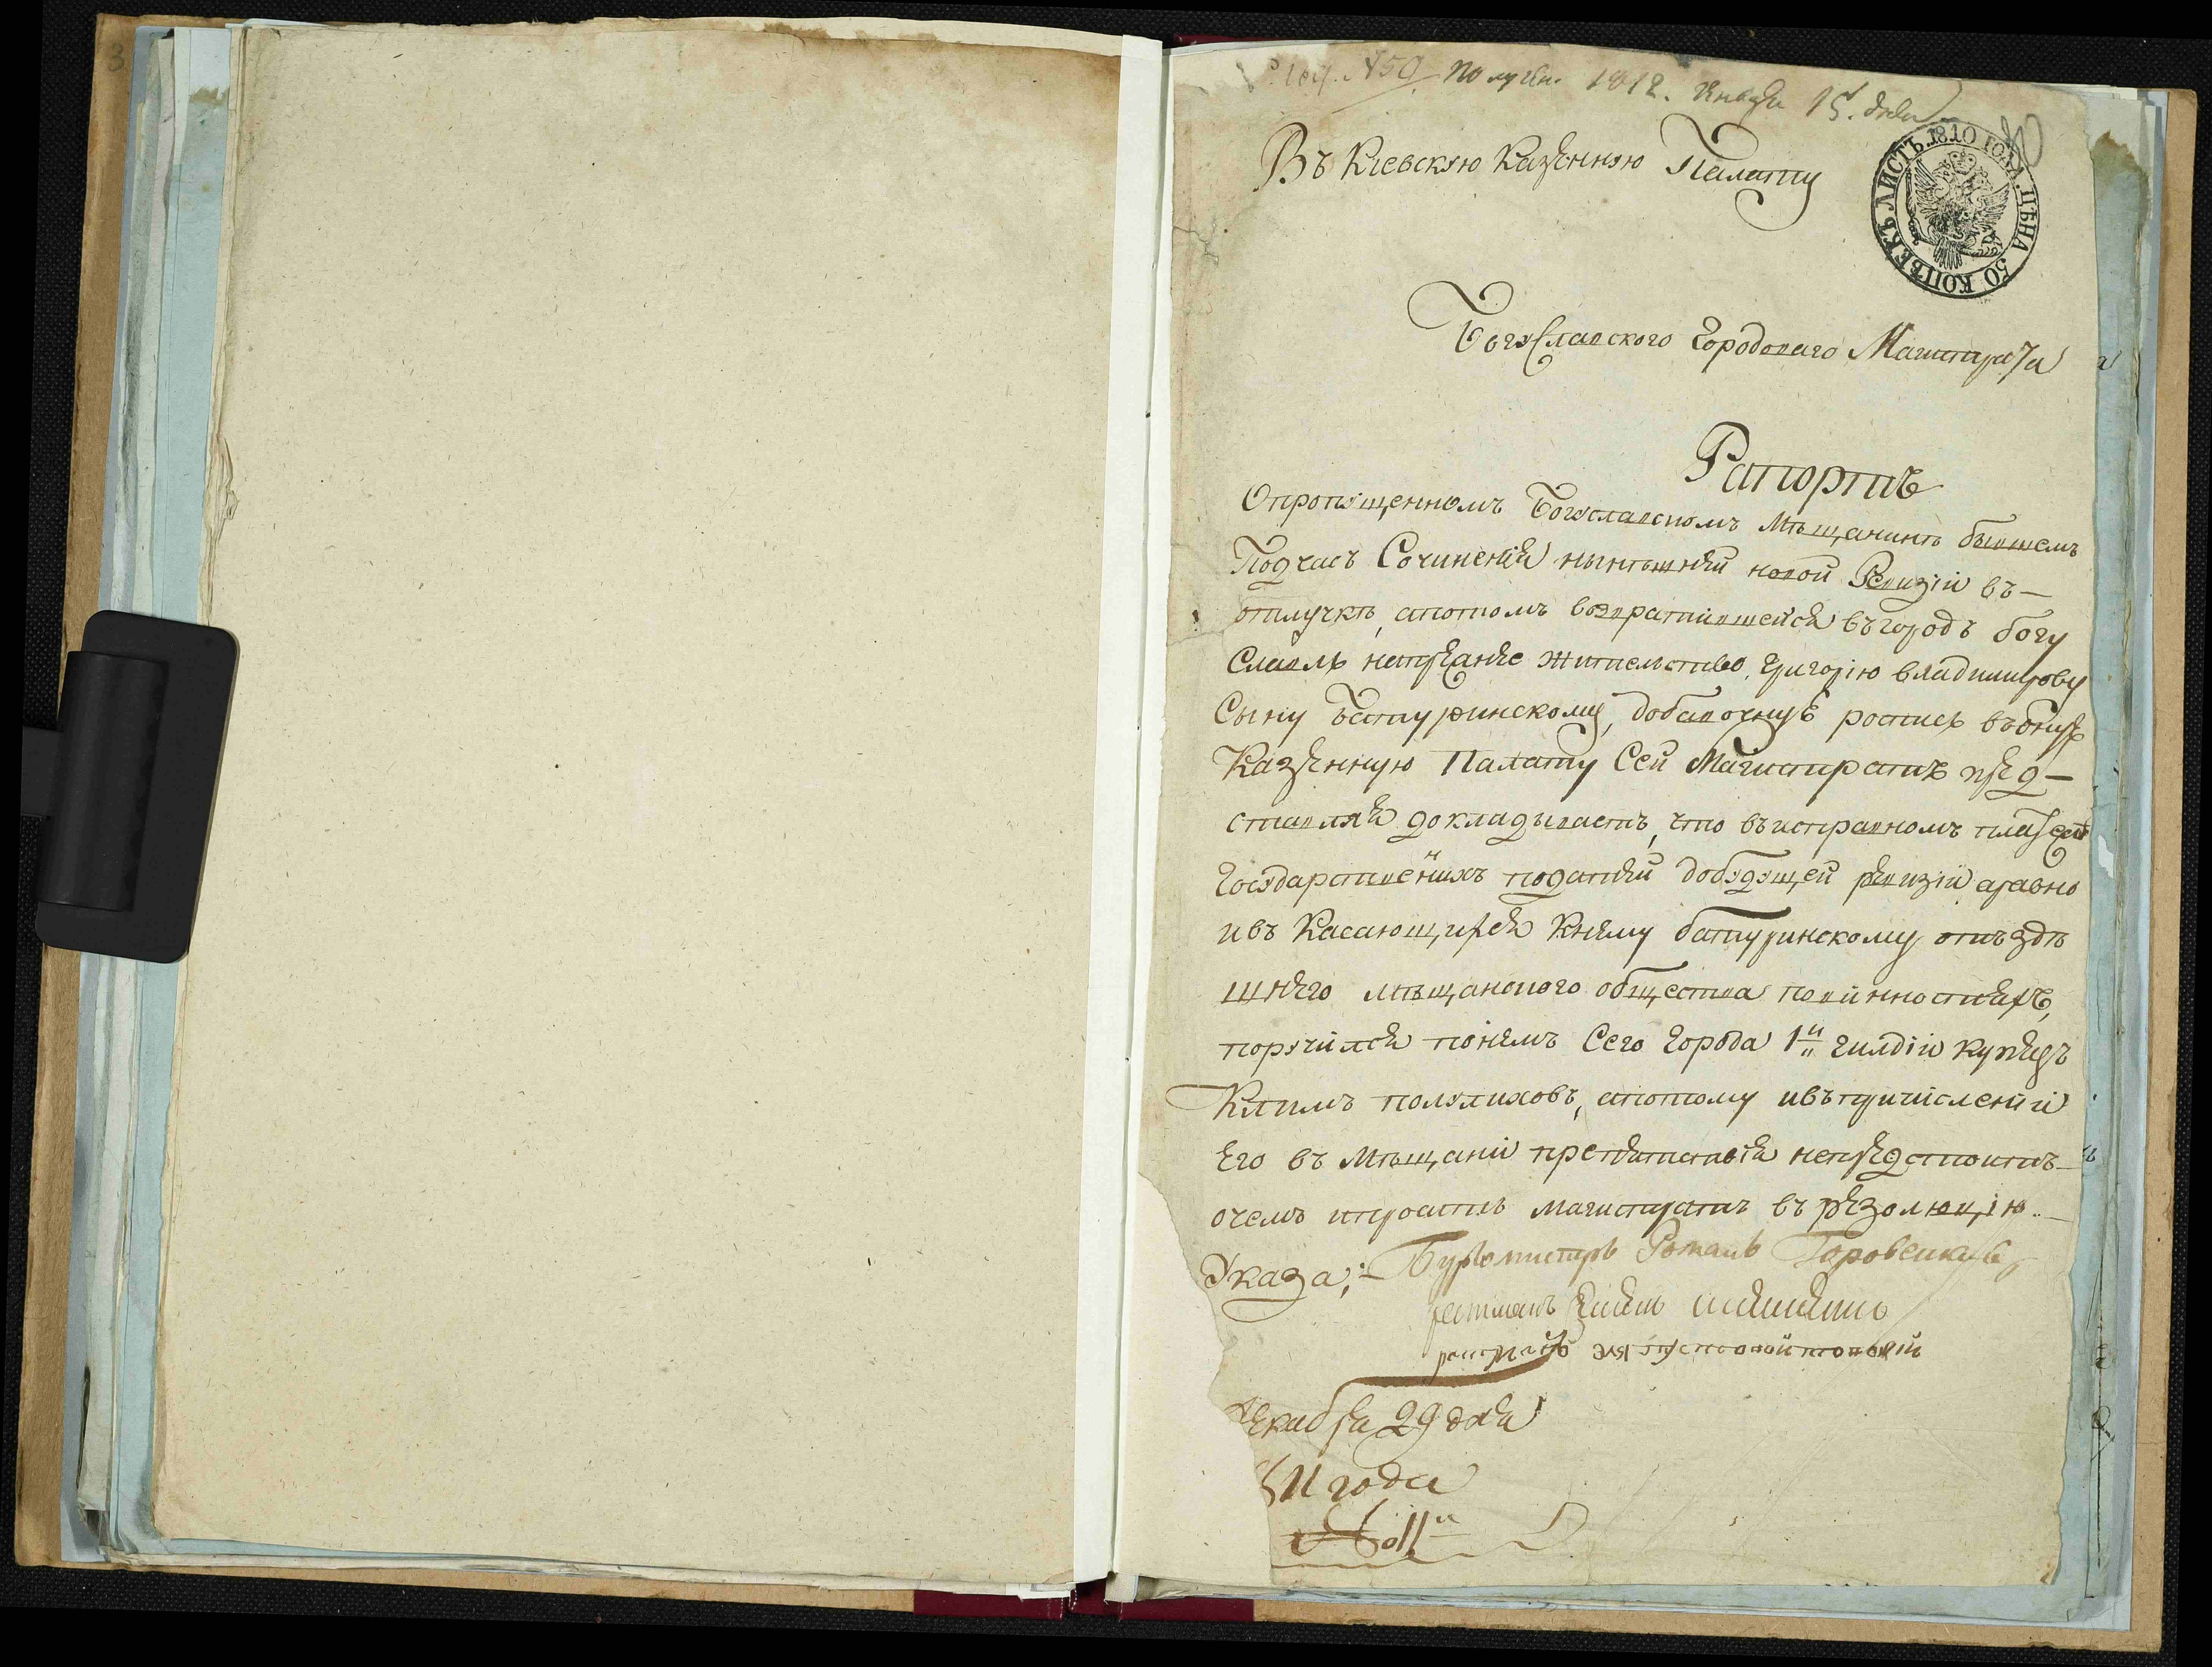 3
№ 459 получен. 1812. Января 15. дня
Въ Кіевскую Казенную Палату
ЛИСТЪ. 1810 ГОДА. ЦѢНА 50 КОПѢЕКЪ
Богуславского Городоваго Магистрата
Рапортъ
Опропущенномъ Богуславскомъ Мѣщанинѣ бывшемъ
Подчасъ Сочиненія нынѣшней новой Ревизіи въ—
отлучкѣ, апотомъ возвратившейся въгородъ богу
Славль напрежнее жительство, Григорію владимирову
Сыну Батуринскому, добавочную роспись въоную
Казенную Палату Сей Магистратъ пред—
ставляя докладываетъ, что въисправномъ платежѣ
Государственныхъ податей добудущей ревизіи, аравно
ивъ Касающихся Кнему батуринскому отъ здѣ
шнего мѣщанского общества повинностяхъ,
поручился понемъ Сего Города 1й гилдіи купецъ
Климъ полулиховъ, апотому ивъпричисленіи
Его въ Мѣщани препятствія непредстоитъ—
очемъ ипроситъ магистратъ въ резолюцію.—
Указа;— Бургомистръ Романъ
ратманъ
ратманъ
декабря 29 дня
11 года